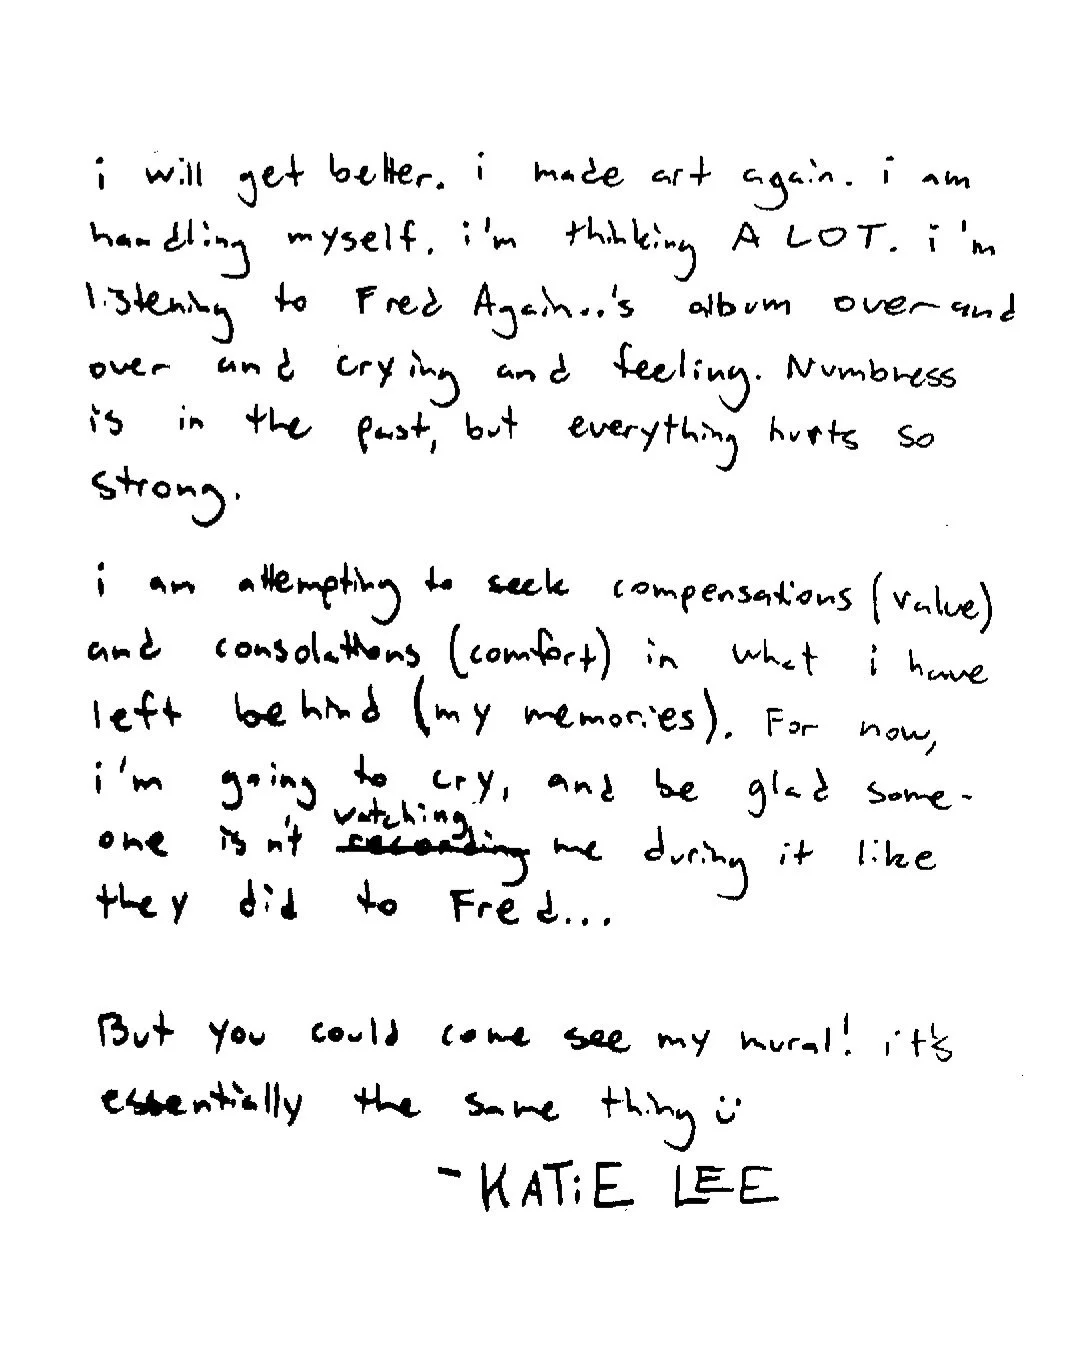 i will get better. i made art again. i am
handling myself. i'm thinking A LOT. i'm
listening to Fred Again..'s album over and
over and crying and feeling. Numbness
is in the past, but everything hurts so
strong.
i am attempting to seek compensations (value)
and consolations (comfort) in what i have
left behind (my memories). For now,
i'm going to cry, and be glad some-
one isn't watching me during it like
they did to Fred...
But you could come see my mural! it's
essentially the same thing ü
-KATiE LEE